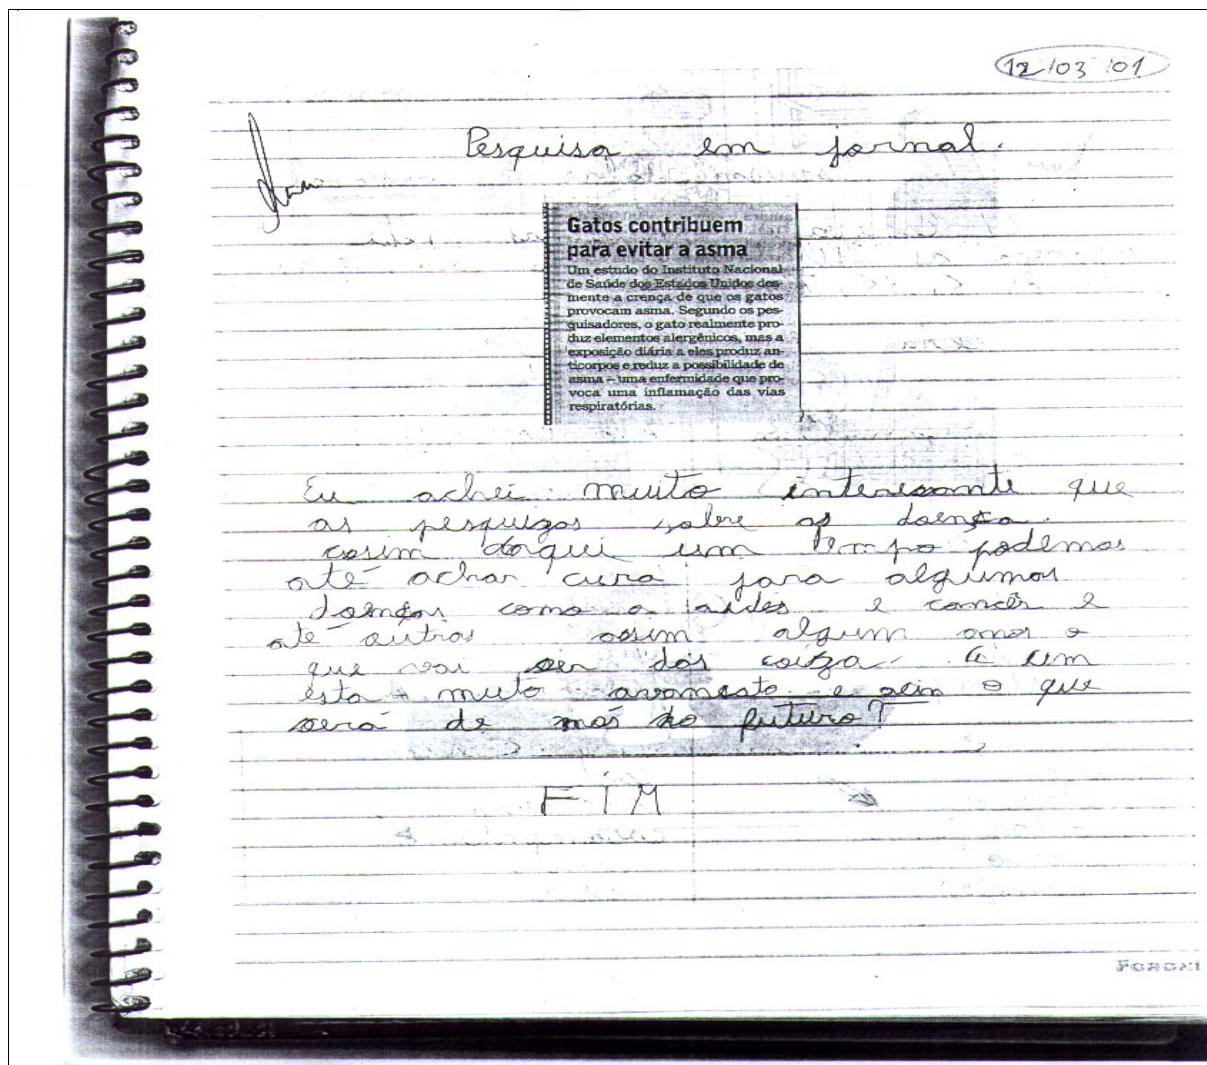 12/03/01
Pesquisa em jornal.
Gatos contribuem
para evitar a asma
Um estudo do Instituto Nacional
de Saúde dos Estados Unidos des-
mente a crença de que os gatos
provocam asma. Segundo os pes-
quisadores, o gato realmente pro-
duz elementos alergênicos, mas a
exposição diária a eles produz an-
ticorpos e reduz a possibilidade de
asma – uma enfermidade que pro-
voca uma inflamação das vias
respiratórias.
Eu achei muito interesante que
as pesquizas sobre as doença.
asim daqui um tempo podemos
até achar cura para algumas
doenças como a aides e cancêr e
até outras asim algum anos o
que vai ser das coiza. a um
esta muto avansato e asim o que
será de nós no futuro?
FIM